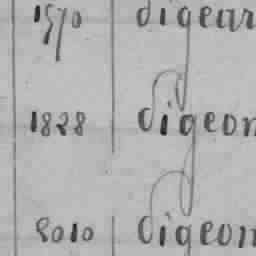 1570 digear
1828 digeon
8010 digeon